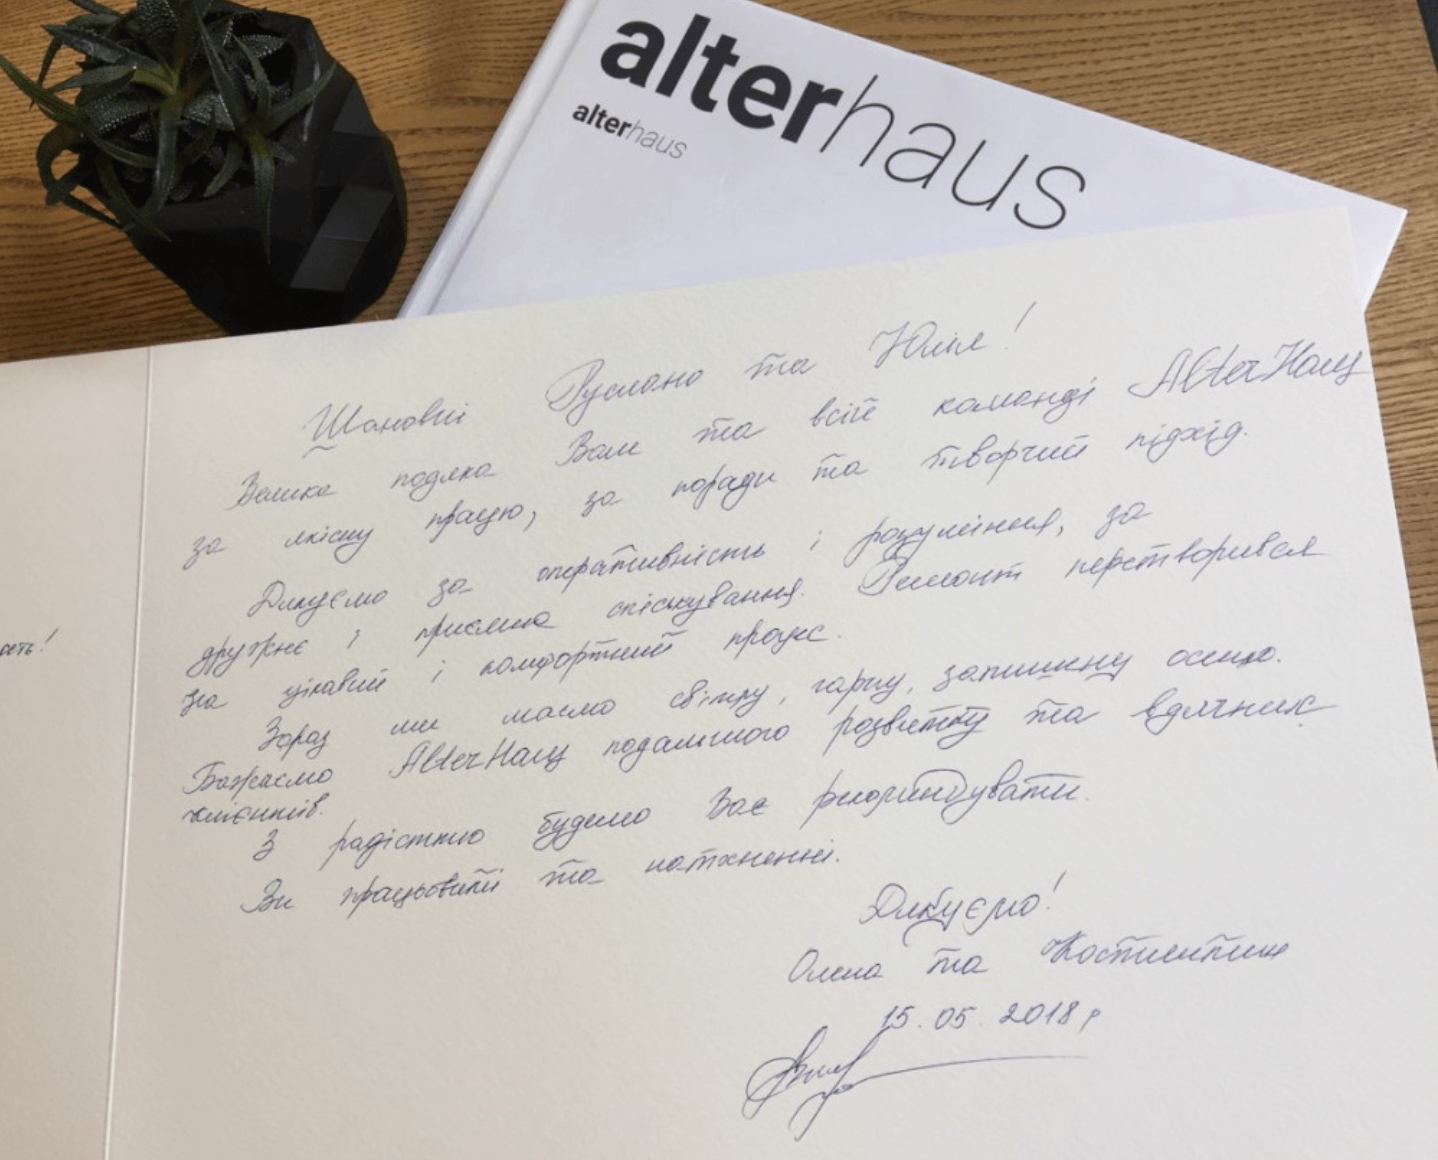 alterhaus
alterhaus
Шановні Руслано та Юліє!
Велика подяка Вам та всій команді AlterHaus
за якісну працю, за поради та творчий підхід.
Дякуємо за оперативність і розуміння, за
дружнє і приємне спілкування. Ремонт перетворився
на цікавий і комфортний процес.
Зараз ми маємо світлу, гарну, затишну оселю.
Бажаємо AlterHaus подальшого розвитку та вдячних
клієнтів.
З радістю будемо Вас рекомендувати.
Ви працьовиті та натхненні.
Дякуємо!
Олена та Костянтин
15.05.2018 р